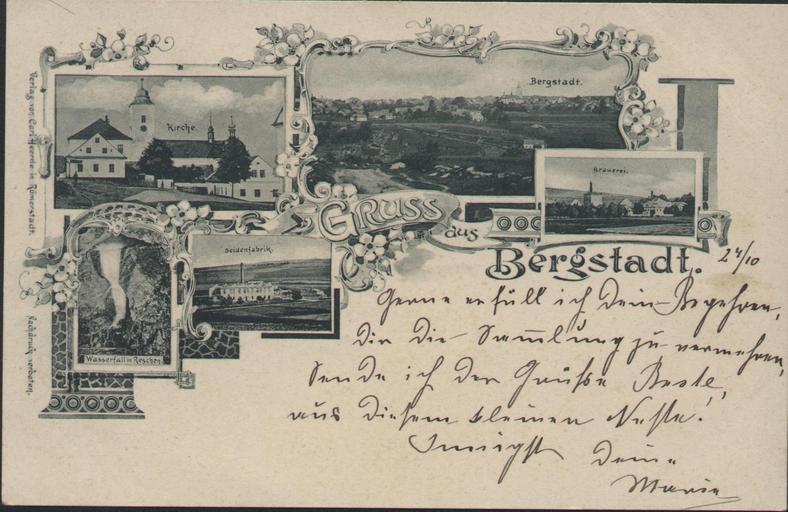 Kirche.
Bergstadt.
Brauerei.
Gruss
aus
Bergstadt.
Seidenfabrik.
Wasserfall in Reschen
Verlag von Carl Heerde in Römerstadt.
Nachdruck verboten.
24/10
Gerne erfüll ich Dein Begehren,
Dir die Sammlung zu vermehren,
Sende ich der Grüße Beste,
aus diesem kleinen Neste!
Innigst Deine
Marie